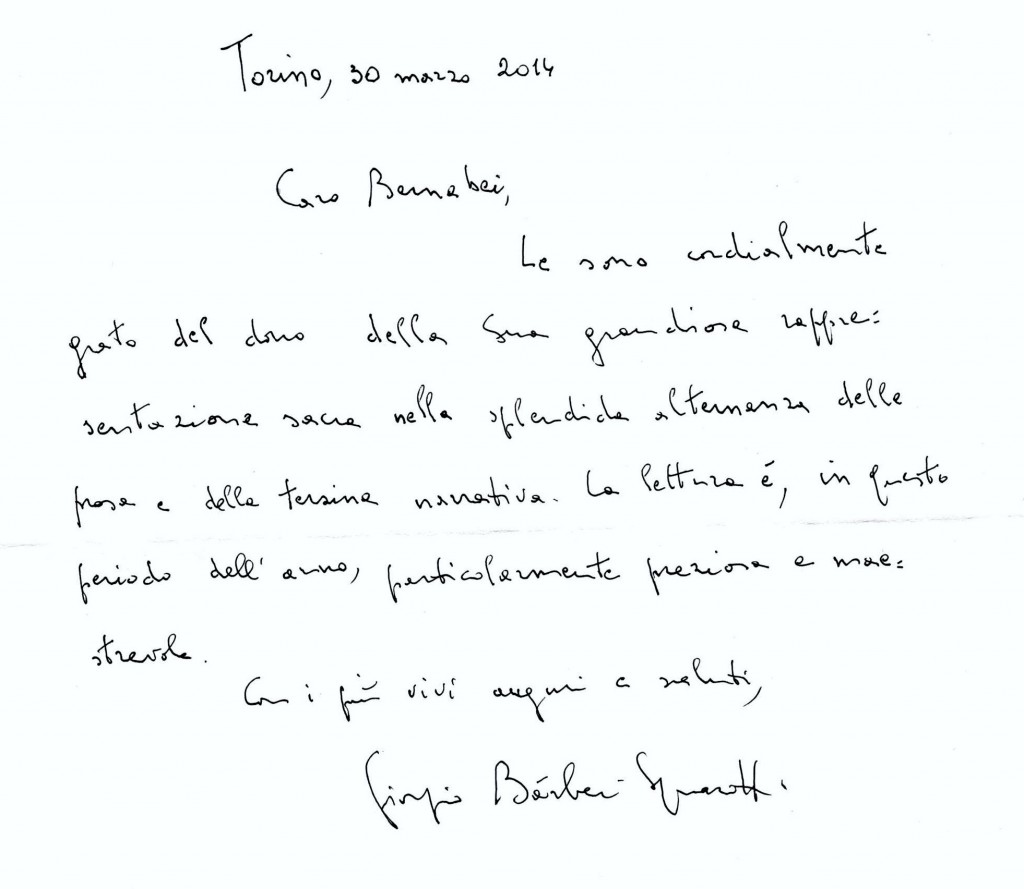 Torino, 30 marzo 2014
Caro Bernabei,
Le sono cordialmente
grato del dono della Sua grandiosa rappre=
sentazione sacra nella splendida alternanza delle
prosa e della terzina narrativa. La lettura é, in questo
periodo dell'anno, particolarmente preziosa e mae=
strevole.
Con i più vivi auguri e saluti,
Giorgio Bárberi Squarotti.